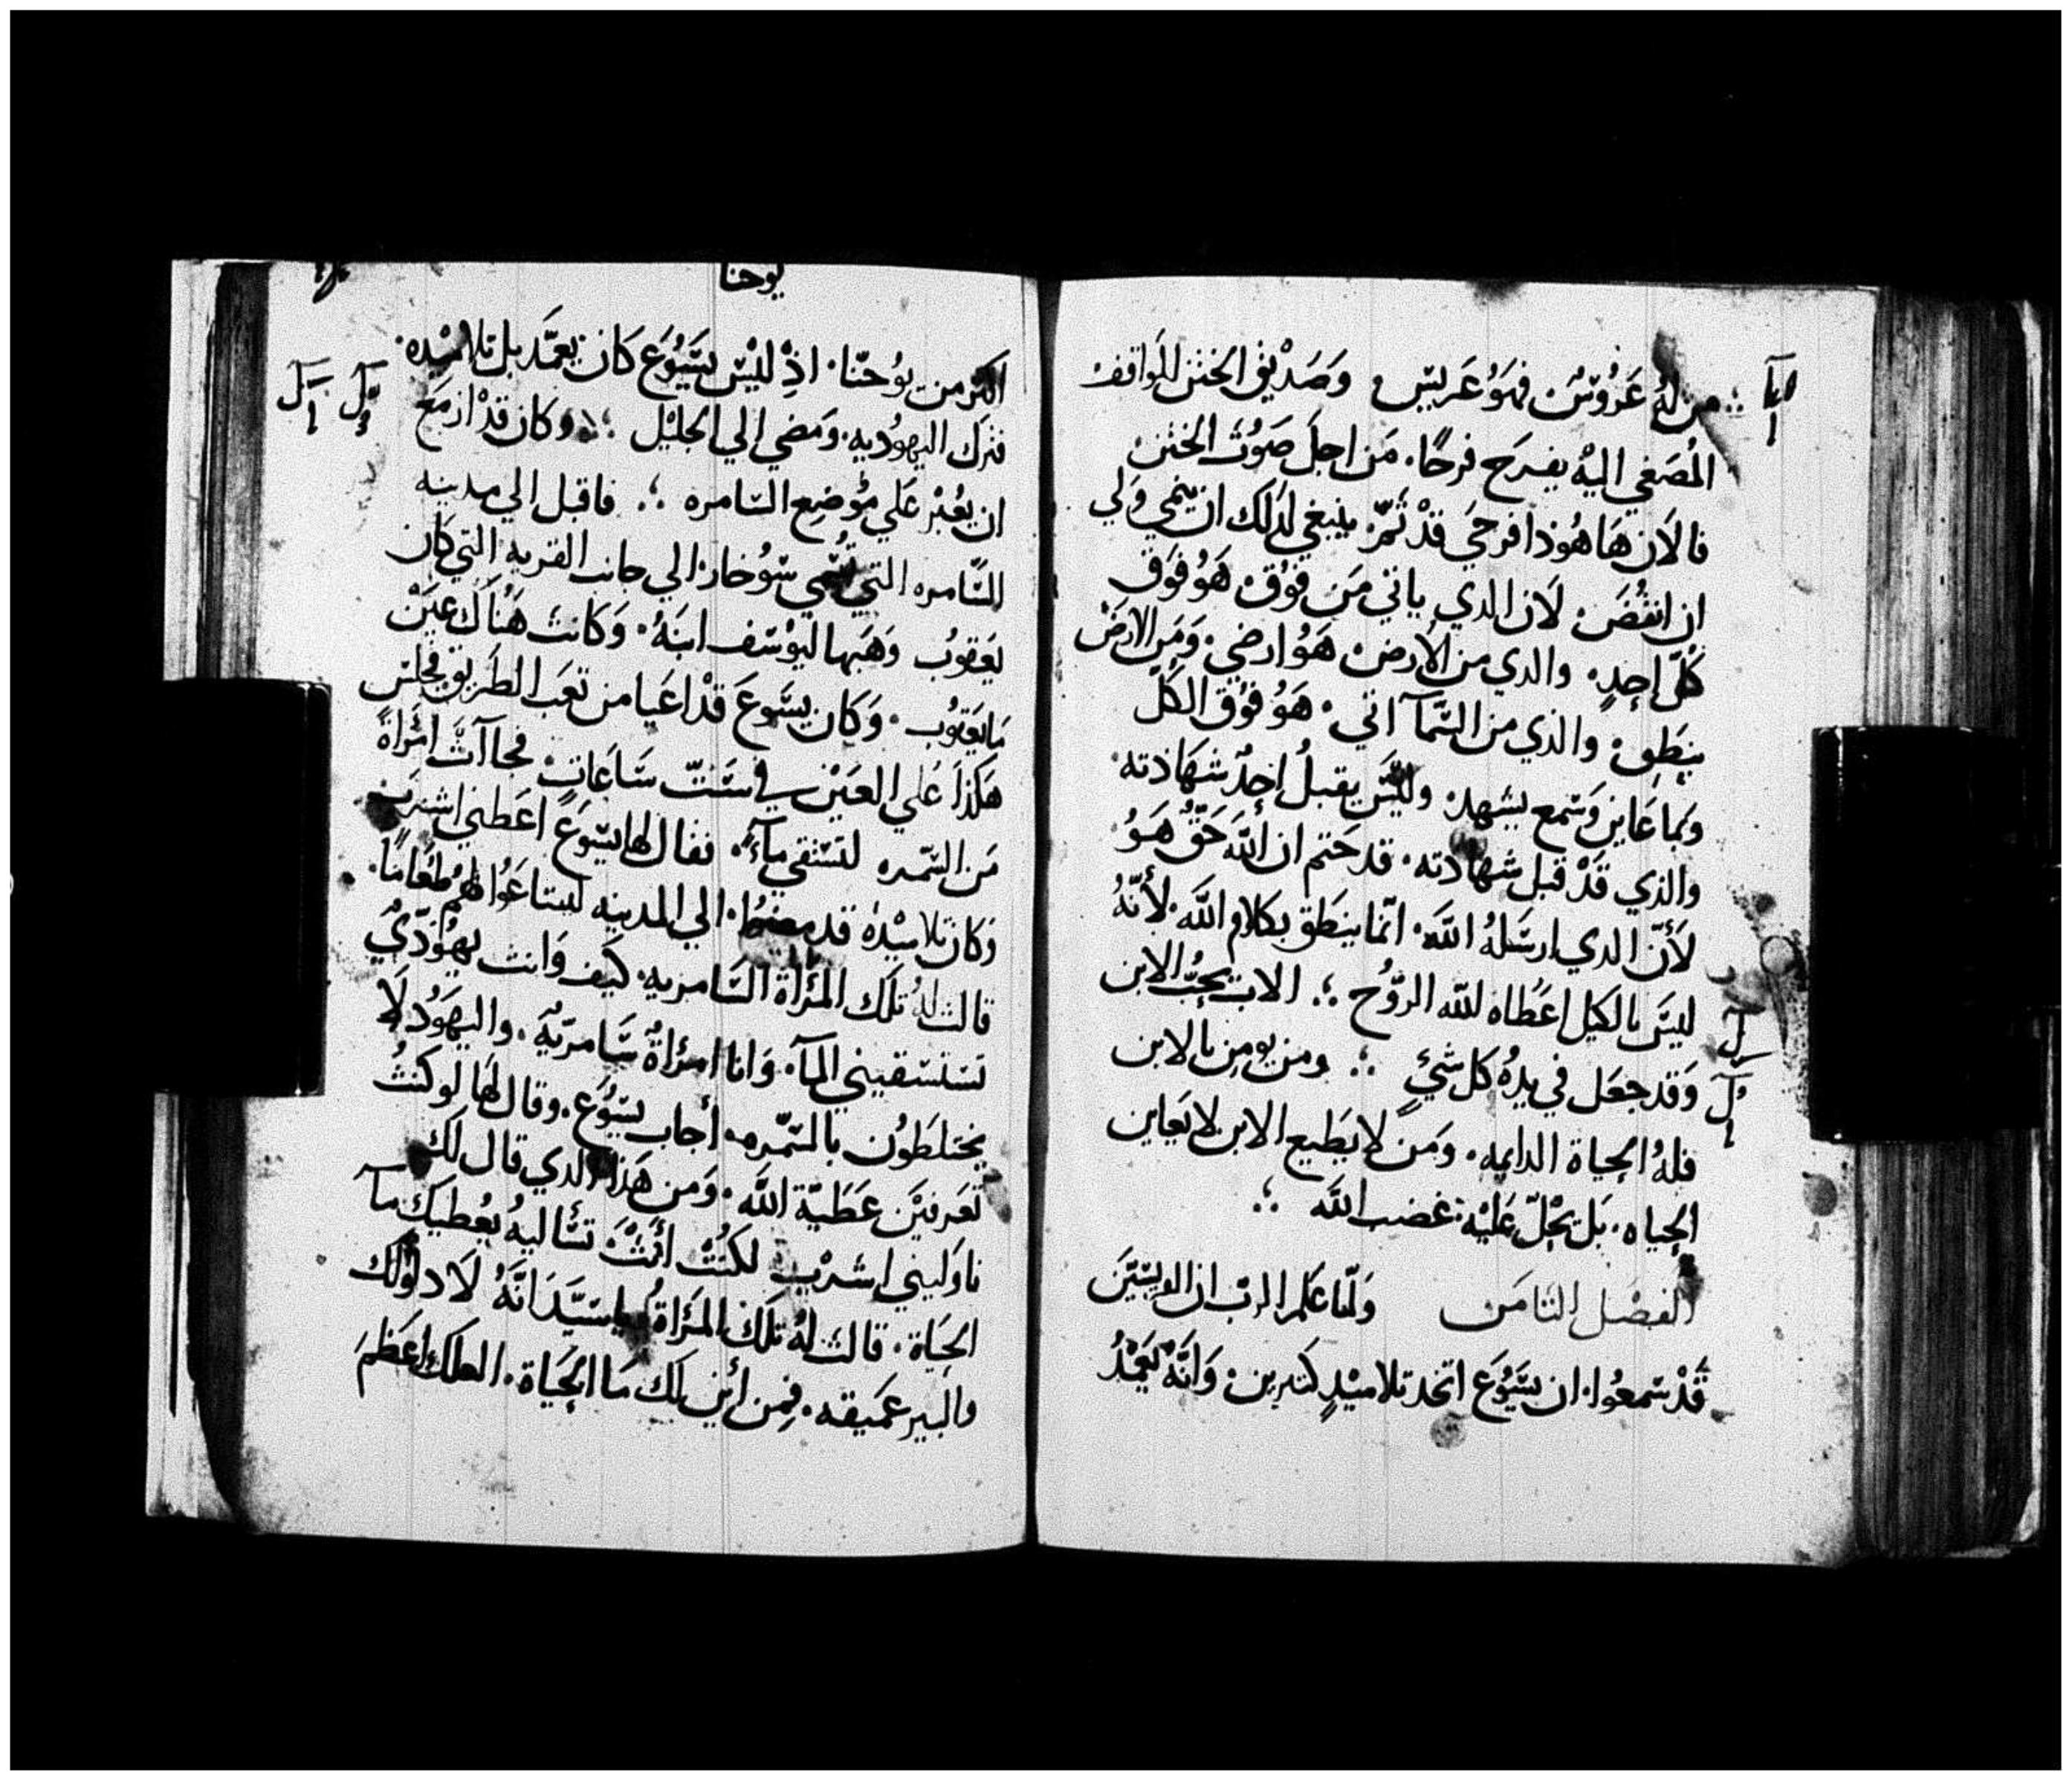 من له عَرُوسٌ فهوَ عَريس وَصَديق الختن الواقف
المُصَغي اليهْ يفرَح فرحًا. مَن اجل صَوْت الختن
فالان هَاهُوذا فرحي قدْ تَمّ. ينبغي لدَلك ان ينمي وَلي
ان انقُصَ. لان الدي ياتي مَن فوْق هَوُ فوَق
كُلّ احدٍ. والدي من الأرض هَوُ ارضي. وَمَن الارض
ينطِق. والذي من السَّمآ اتي. هَوُ فوْق الكَلّ
وَبما عَاين وَسَمع يشهد. وليَسَ يقبلُ احدٌ شهَادته.
والذي قَدْ قبل شهادته. قد حَتم ان اللّهَ حَقٌّ هَوُ
لأَنّ الدي ارسَلهُ اللّهَ. انّما ينطَق بكلام اللّهَ. لأنّهُ
ليسَ بالكيل اعَطاه للّه الروُّح ؞ الاب يحِبُّ الابن
وَقد جعَل في يدهُ كل شَيٍ ؞ ومن يومن بالابن
فلهُ الحياة الدايمه. وَمَن لا يطيع الابن لا يَعاين
الحياه. بَل يحُلّ عَليْه غضب اللّه ؞
الفصْل الثامَن وَلمّا عَلم الربّ ان الفريسيّين
قَدْ سَمعُوا. ان يسَوُع اتخد تلاميْدٍ كثيرين. وَانّهُ يَعمْدُ
يوحنا
اكثر من يوُحنّا. اذِ ليْسَ يسَوُع كَان يعَمَّد بل تلاميْده.
فترك اليهوُديه. وَمَضي الي الجليْل ؞ وكان قدْ ازمَع
ان يعُبْر عَلي موُضِع السَامره ؞ فاقبل الي مدينه
السَّامره التي تسُمي سَوُخار. الي جانب القريه التي كَان
يَعَقوُب وَهَبها ليوُسَف ابنَهُ. وَكانت هَنَاك عينْ
مَا يَعَقوُب. وَكَان يسَوع قدْ اعَيا من تعَب الطَريق فجلسَ
هَكذا عَلي العَيْن في سَتّ سَاعَاتٍ. فجاآت امَراة
مَن السَّمره لتسَتقي مآءً. فقال لها يسَوع اعَطني اشرب
وَكان تلاميْدهُ قد مضوا. الي المدينه ليبتاعَوُا لهُمْ طعَامًا.
قالت لهُ تلك المرْاة السَامريه. كَيف وَانت يهوُدّيٌ
تسَتسَقيني المآ. وَانا امرُاةٌ سَامريّهَ. واليهَوُد لَا
يختلطَوُن بالسَّمره. أجاب يسَوُع. وقال لهَا لو كنتُ
تعَرفيَن عَطيّة اللّهَ. وَمن هَذا الدي قال لك
ناوَليني اشربْ لكنُتْ أنتْ تسَأليهُ يعُطيكَ مآ
الحيَاة. قالت لهُ تلَك المرَاةُ يا سَيّدَ انّهُ لَا دلو لَك
والبير عَميَقه. فمِن أين لك مَا الحَيَاة. العلك اعَظمَ